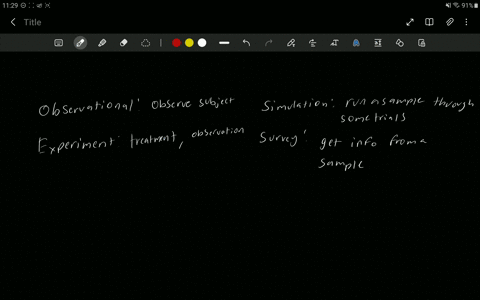 11:29
91%
Title
Observational: observe subject
Simulation: run a sample through
some trials
Experiment: treatment, observation
Survey: get info from a
sample